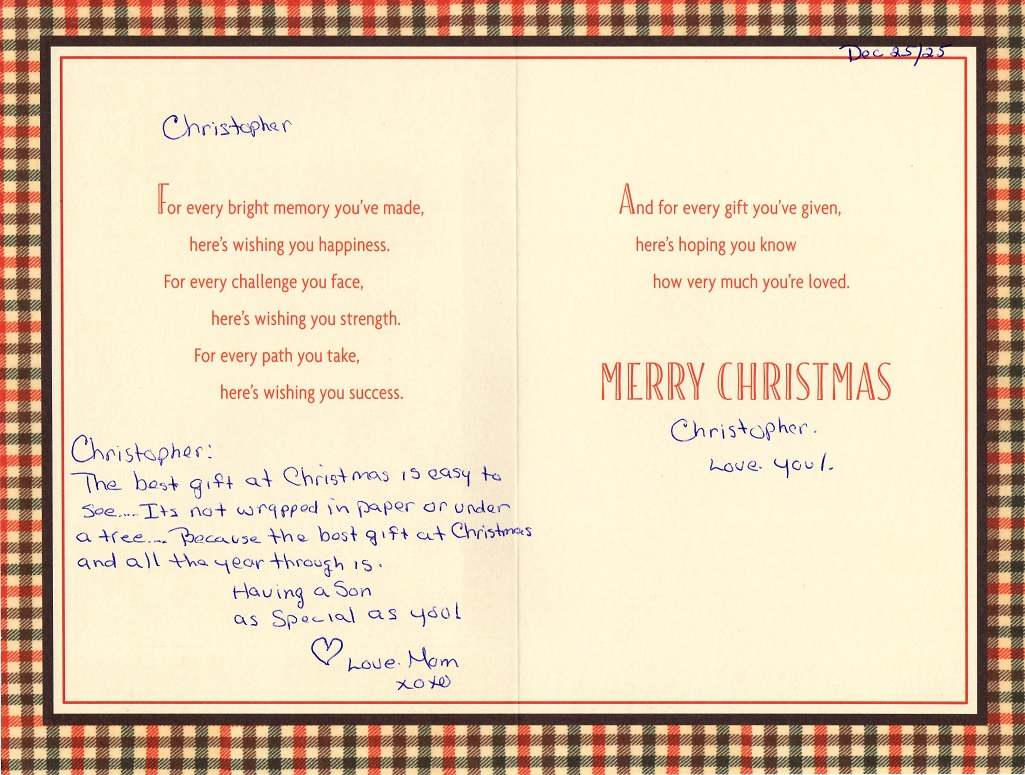 Dec 25/25
Christopher
For every bright memory you've made,
here's wishing you happiness.
For every challenge you face,
here's wishing you strength.
For every path you take,
here's wishing you success.
Christopher:
The best gift at Christmas is easy to
see.... Its not wrapped in paper or under
a tree.... Because the best gift at Christmas
and all the year through is.
Having a Son
as Special as you!
♡ Love. Mom
xoxo
And for every gift you've given,
here's hoping you know
how very much you're loved.
MERRY CHRISTMAS
Christopher.
Love. you!.